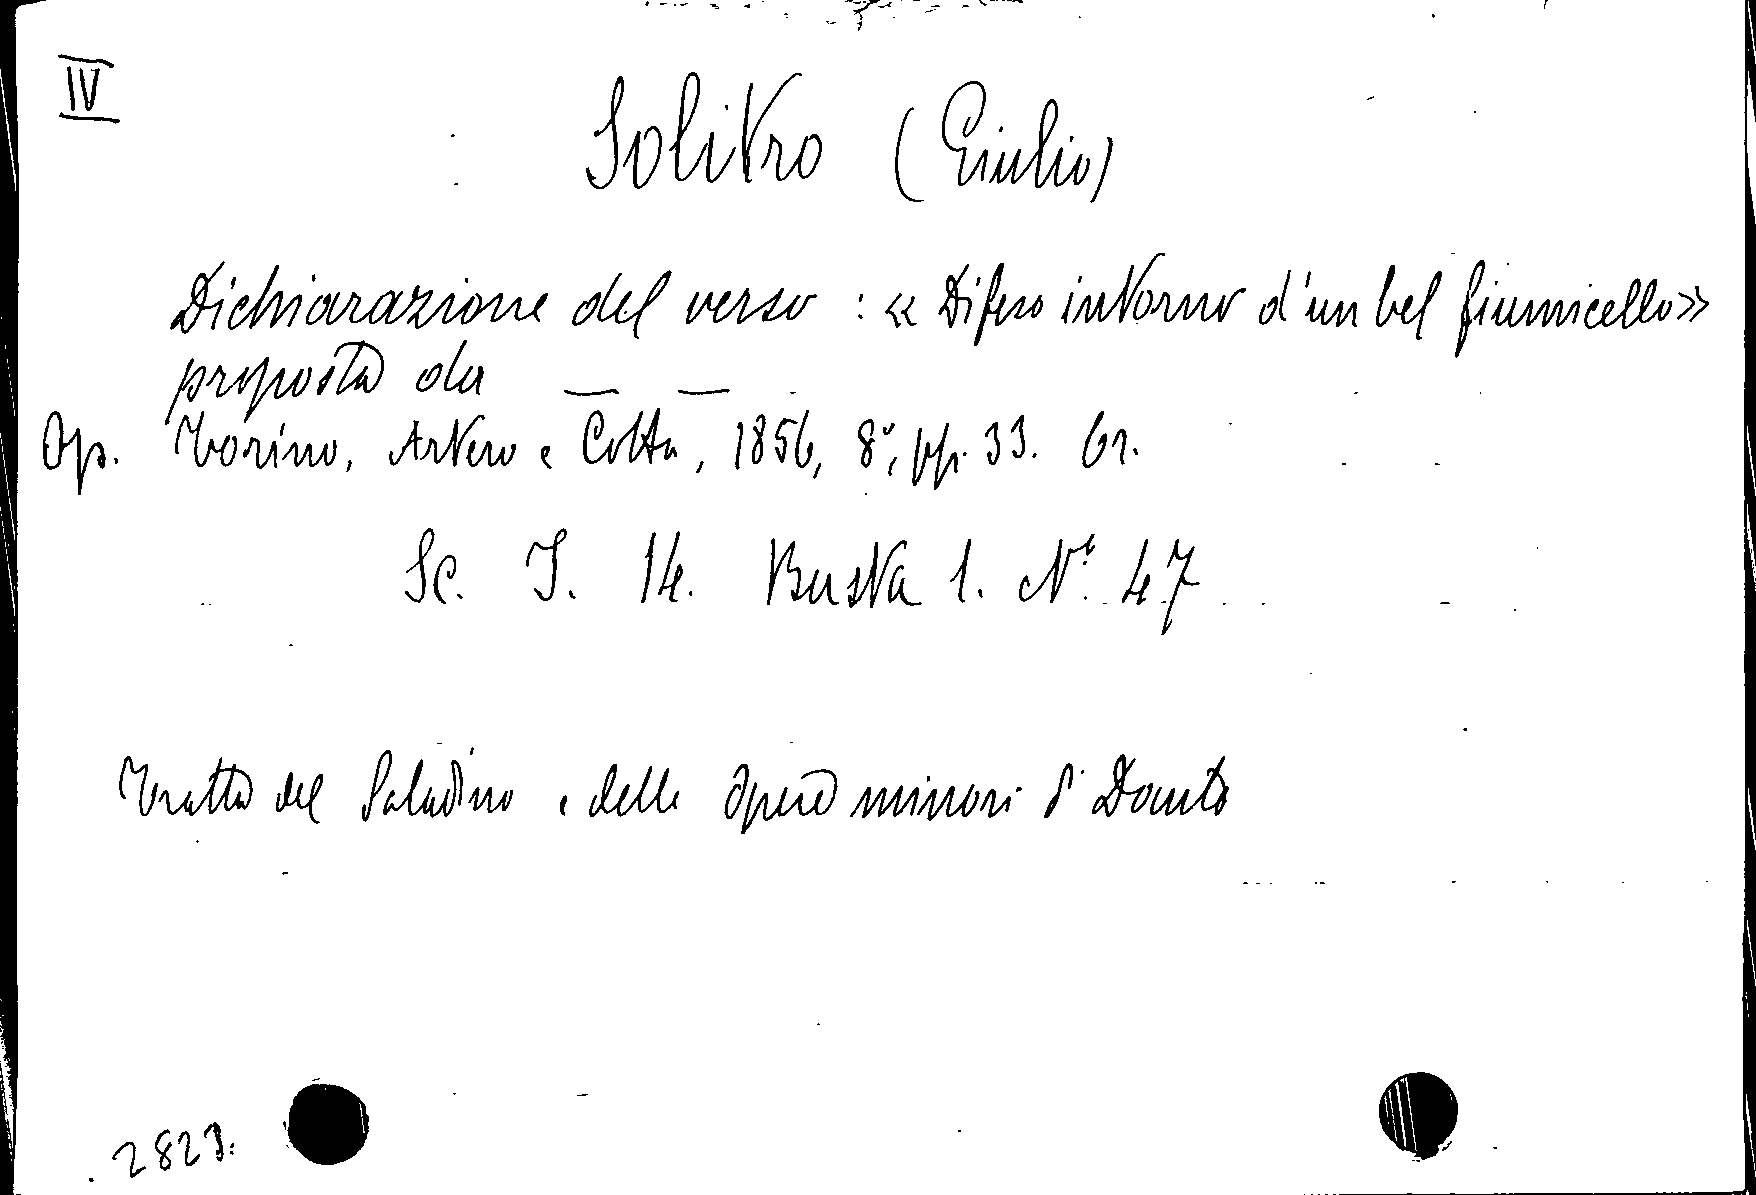 IV
Solitro (Giulio)
Dichiarazione del verso : « Difeso intorno d'un bel fiumicello »
proposta da — —
Op. Torino, Artero e Cotta, 1856, 8°, pp. 33. br.
Sc. I. 14. Busta 1. N° 47
Tratta del Saladino e delle opere minori di Dante
2829.